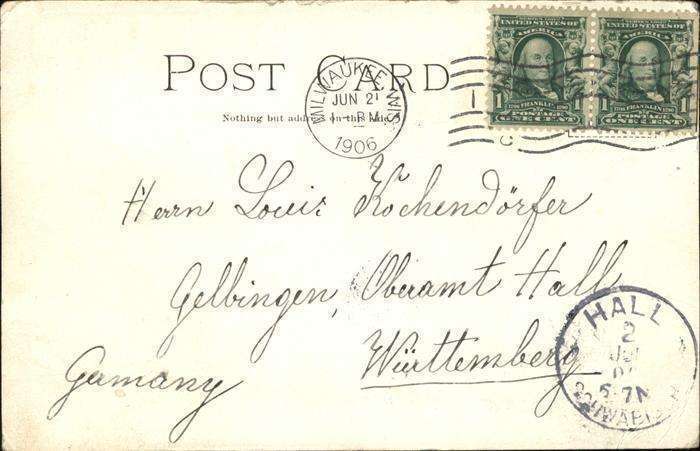 POST CARD
Nothing but address on this side.
MILWAUKEE, WIS.
JUN 21
PM
1906
SERIES 1902
UNITED STATES OF
AMERICA
1 FRANKLIN 1
POSTAGE
ONE CENT
SERIES 1902
UNITED STATES OF
AMERICA
1 FRANKLIN 1
POSTAGE
ONE CENT
Herrn Louis Kochendörfer
Gelbingen, Oberamt Hall
Württemberg
Germany
HALL
2
JUL
6-7N
SCHWÄB